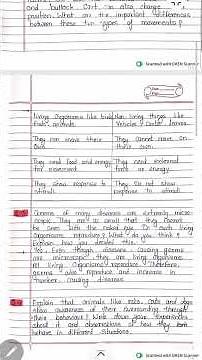 and bullock cart can also change
position. What are the important differences
between these two types of movements?
Scanned with OKEN Scanner
Living organisms like birds,
Non living things like
They can move their
own.
They cannot move on
their own.
They need food and energy
for movement
They need external
force or energy.
They show response to
stimuli
They Do not show
response to stimuli.
Germs of many diseases are extremely micro
scopic. They are so small that they cannot
be seen with the naked eye. Do such living
organisms reproduce? What do you think?
Explain how you decided this.
Yes, Even though disease causing germs
are microscopic they are living organisms.
All living organisms reproduce. Therefore
germs also reproduce and increase in
number, causing diseases.
Explain that animals like cats, cows and dogs
show awareness of their surrounding through
their behaviour. Write down your experiences
about it and observations of how they
behave in different situations.
Scanned with OKEN Scanner